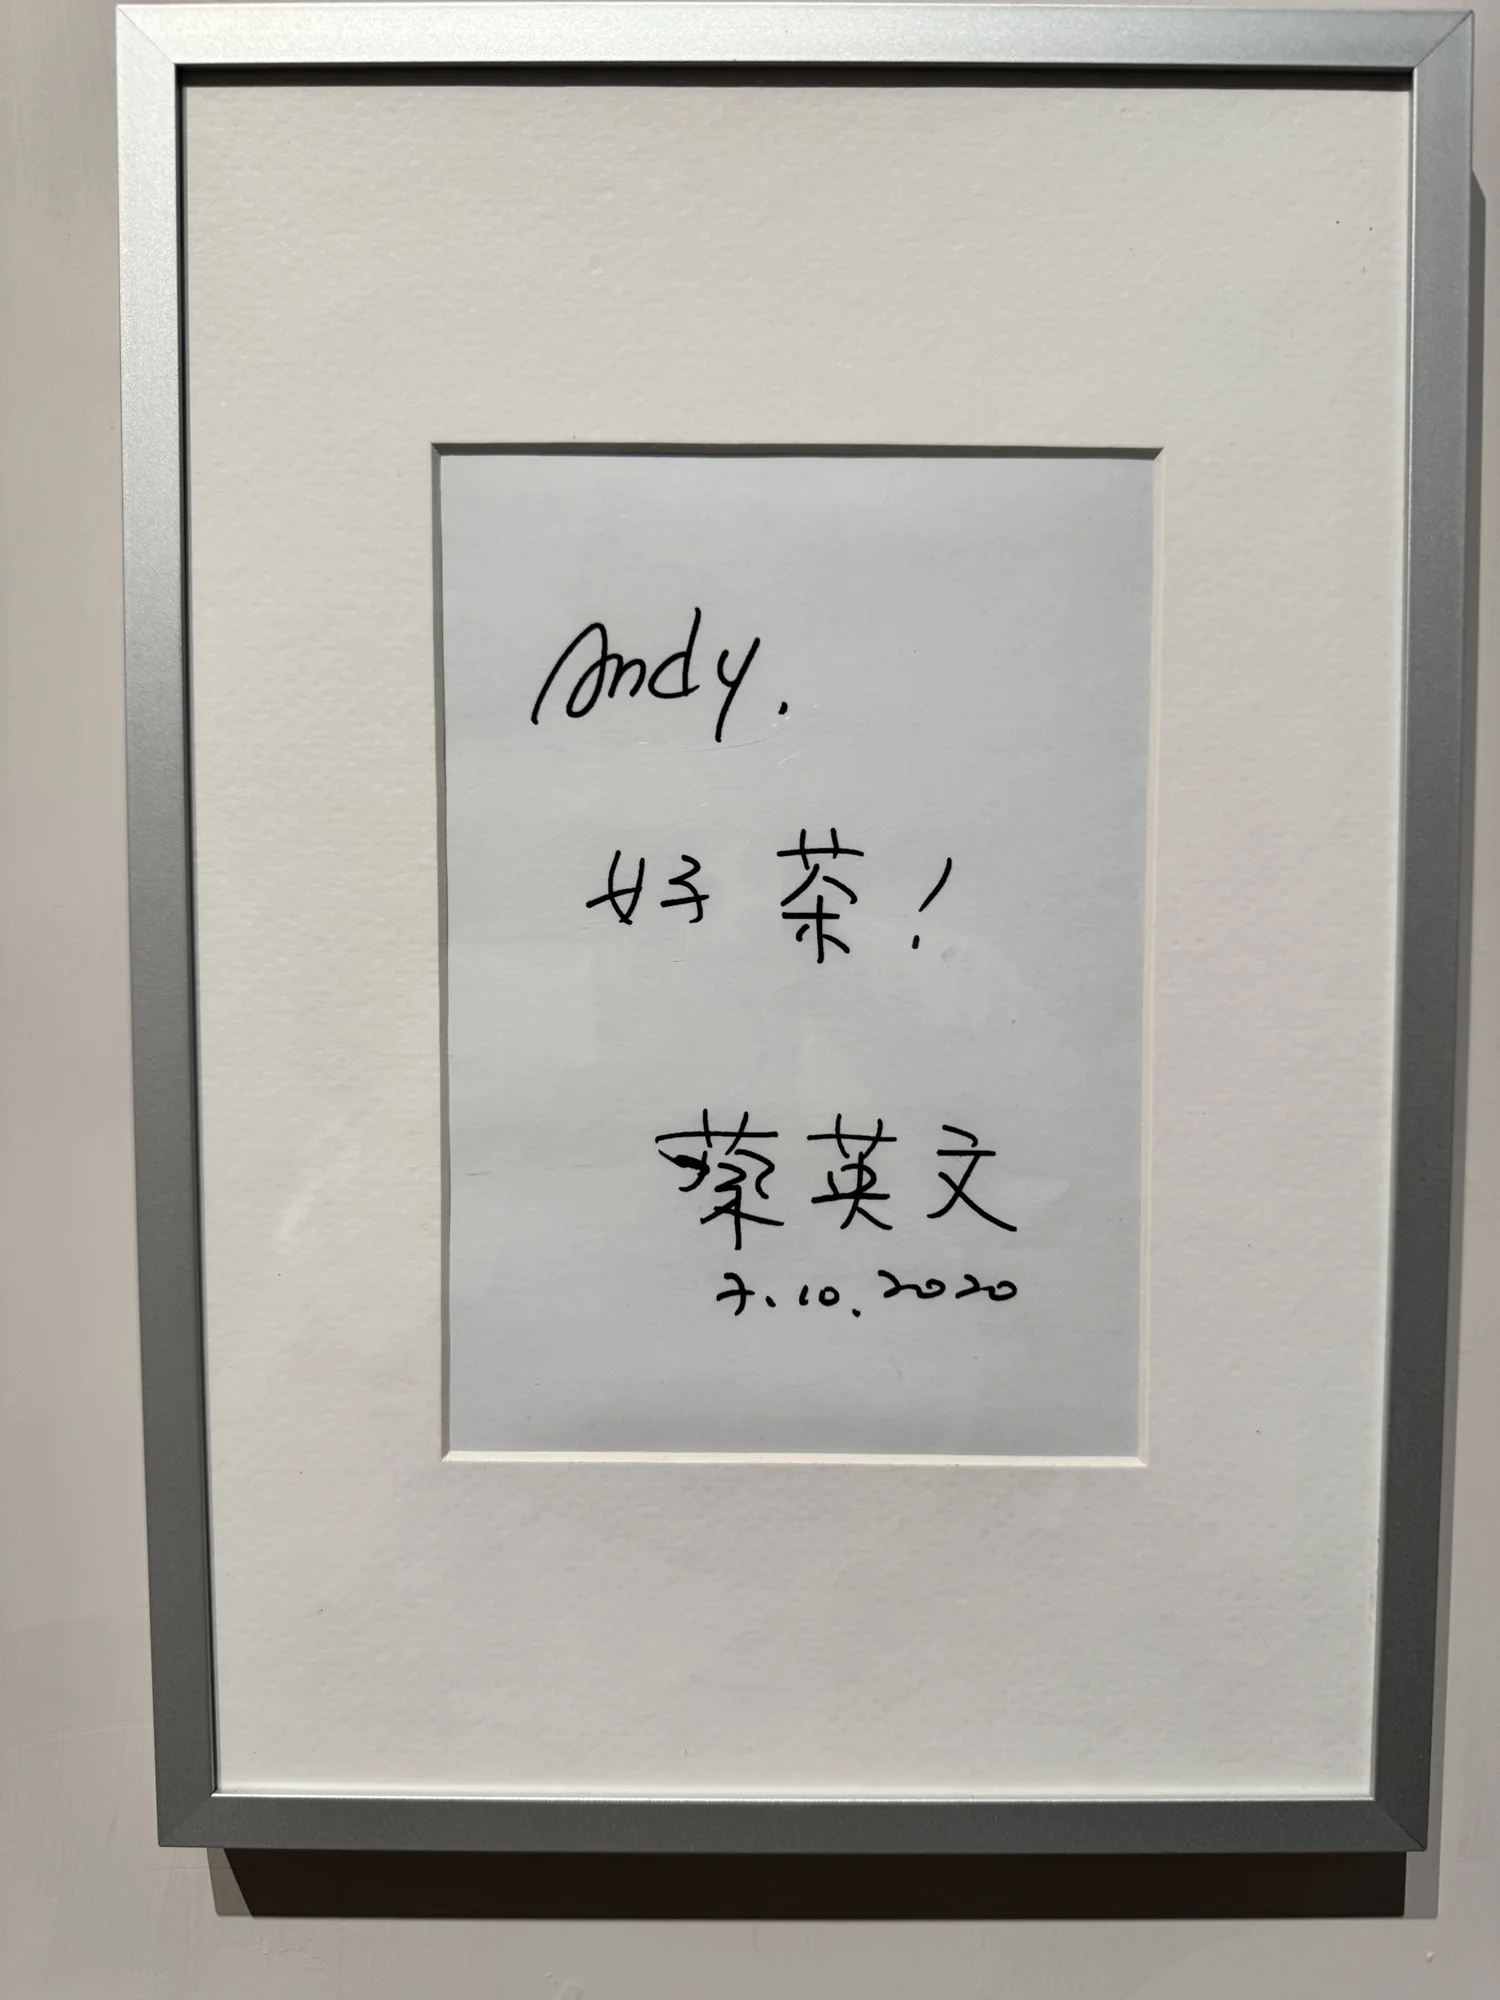 Andy.
好茶!
蔡英文
7.10.2020